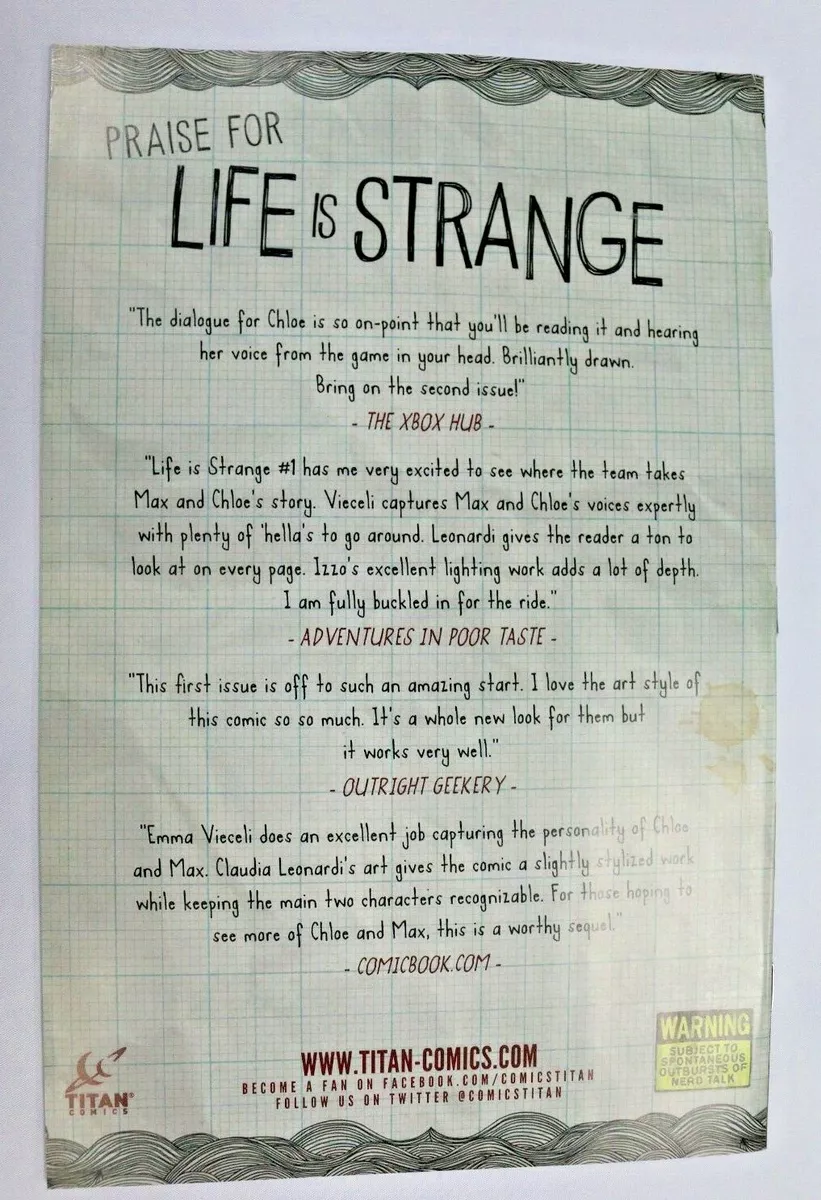 PRAISE FOR
LIFE IS STRANGE
"The dialogue for Chloe is so on-point that you'll be reading it and hearing
her voice from the game in your head. Brilliantly drawn.
Bring on the second issue!"
- THE XBOX HUB -
"Life is Strange #1 has me very excited to see where the team takes
Max and Chloe's story. Vieceli captures Max and Chloe's voices expertly
with plenty of 'hella's to go around. Leonardi gives the reader a ton to
look at on every page. Izzo's excellent lighting work adds a lot of depth.
I am fully buckled in for the ride."
- ADVENTURES IN POOR TASTE -
"This first issue is off to such an amazing start. I love the art style of
this comic so so much. It's a whole new look for them but
it works very well."
- OUTRIGHT GEEKERY -
"Emma Vieceli does an excellent job capturing the personality of Chloe
and Max. Claudia Leonardi's art gives the comic a slightly stylized work
while keeping the main two characters recognizable. For those hoping to
see more of Chloe and Max, this is a worthy sequel."
- COMICBOOK.COM -
WWW.TITAN-COMICS.COM
BECOME A FAN ON FACEBOOK.COM/COMICSTITAN
FOLLOW US ON TWITTER @COMICSTITAN
TITAN®
COMICS
WARNING
SUBJECT TO
SPONTANEOUS
OUTBURSTS OF
NERD TALK